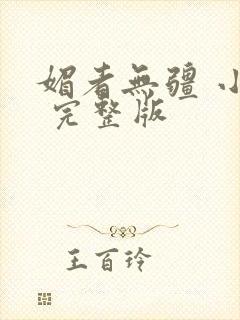 媚者無疆 小
完整版
王百玲